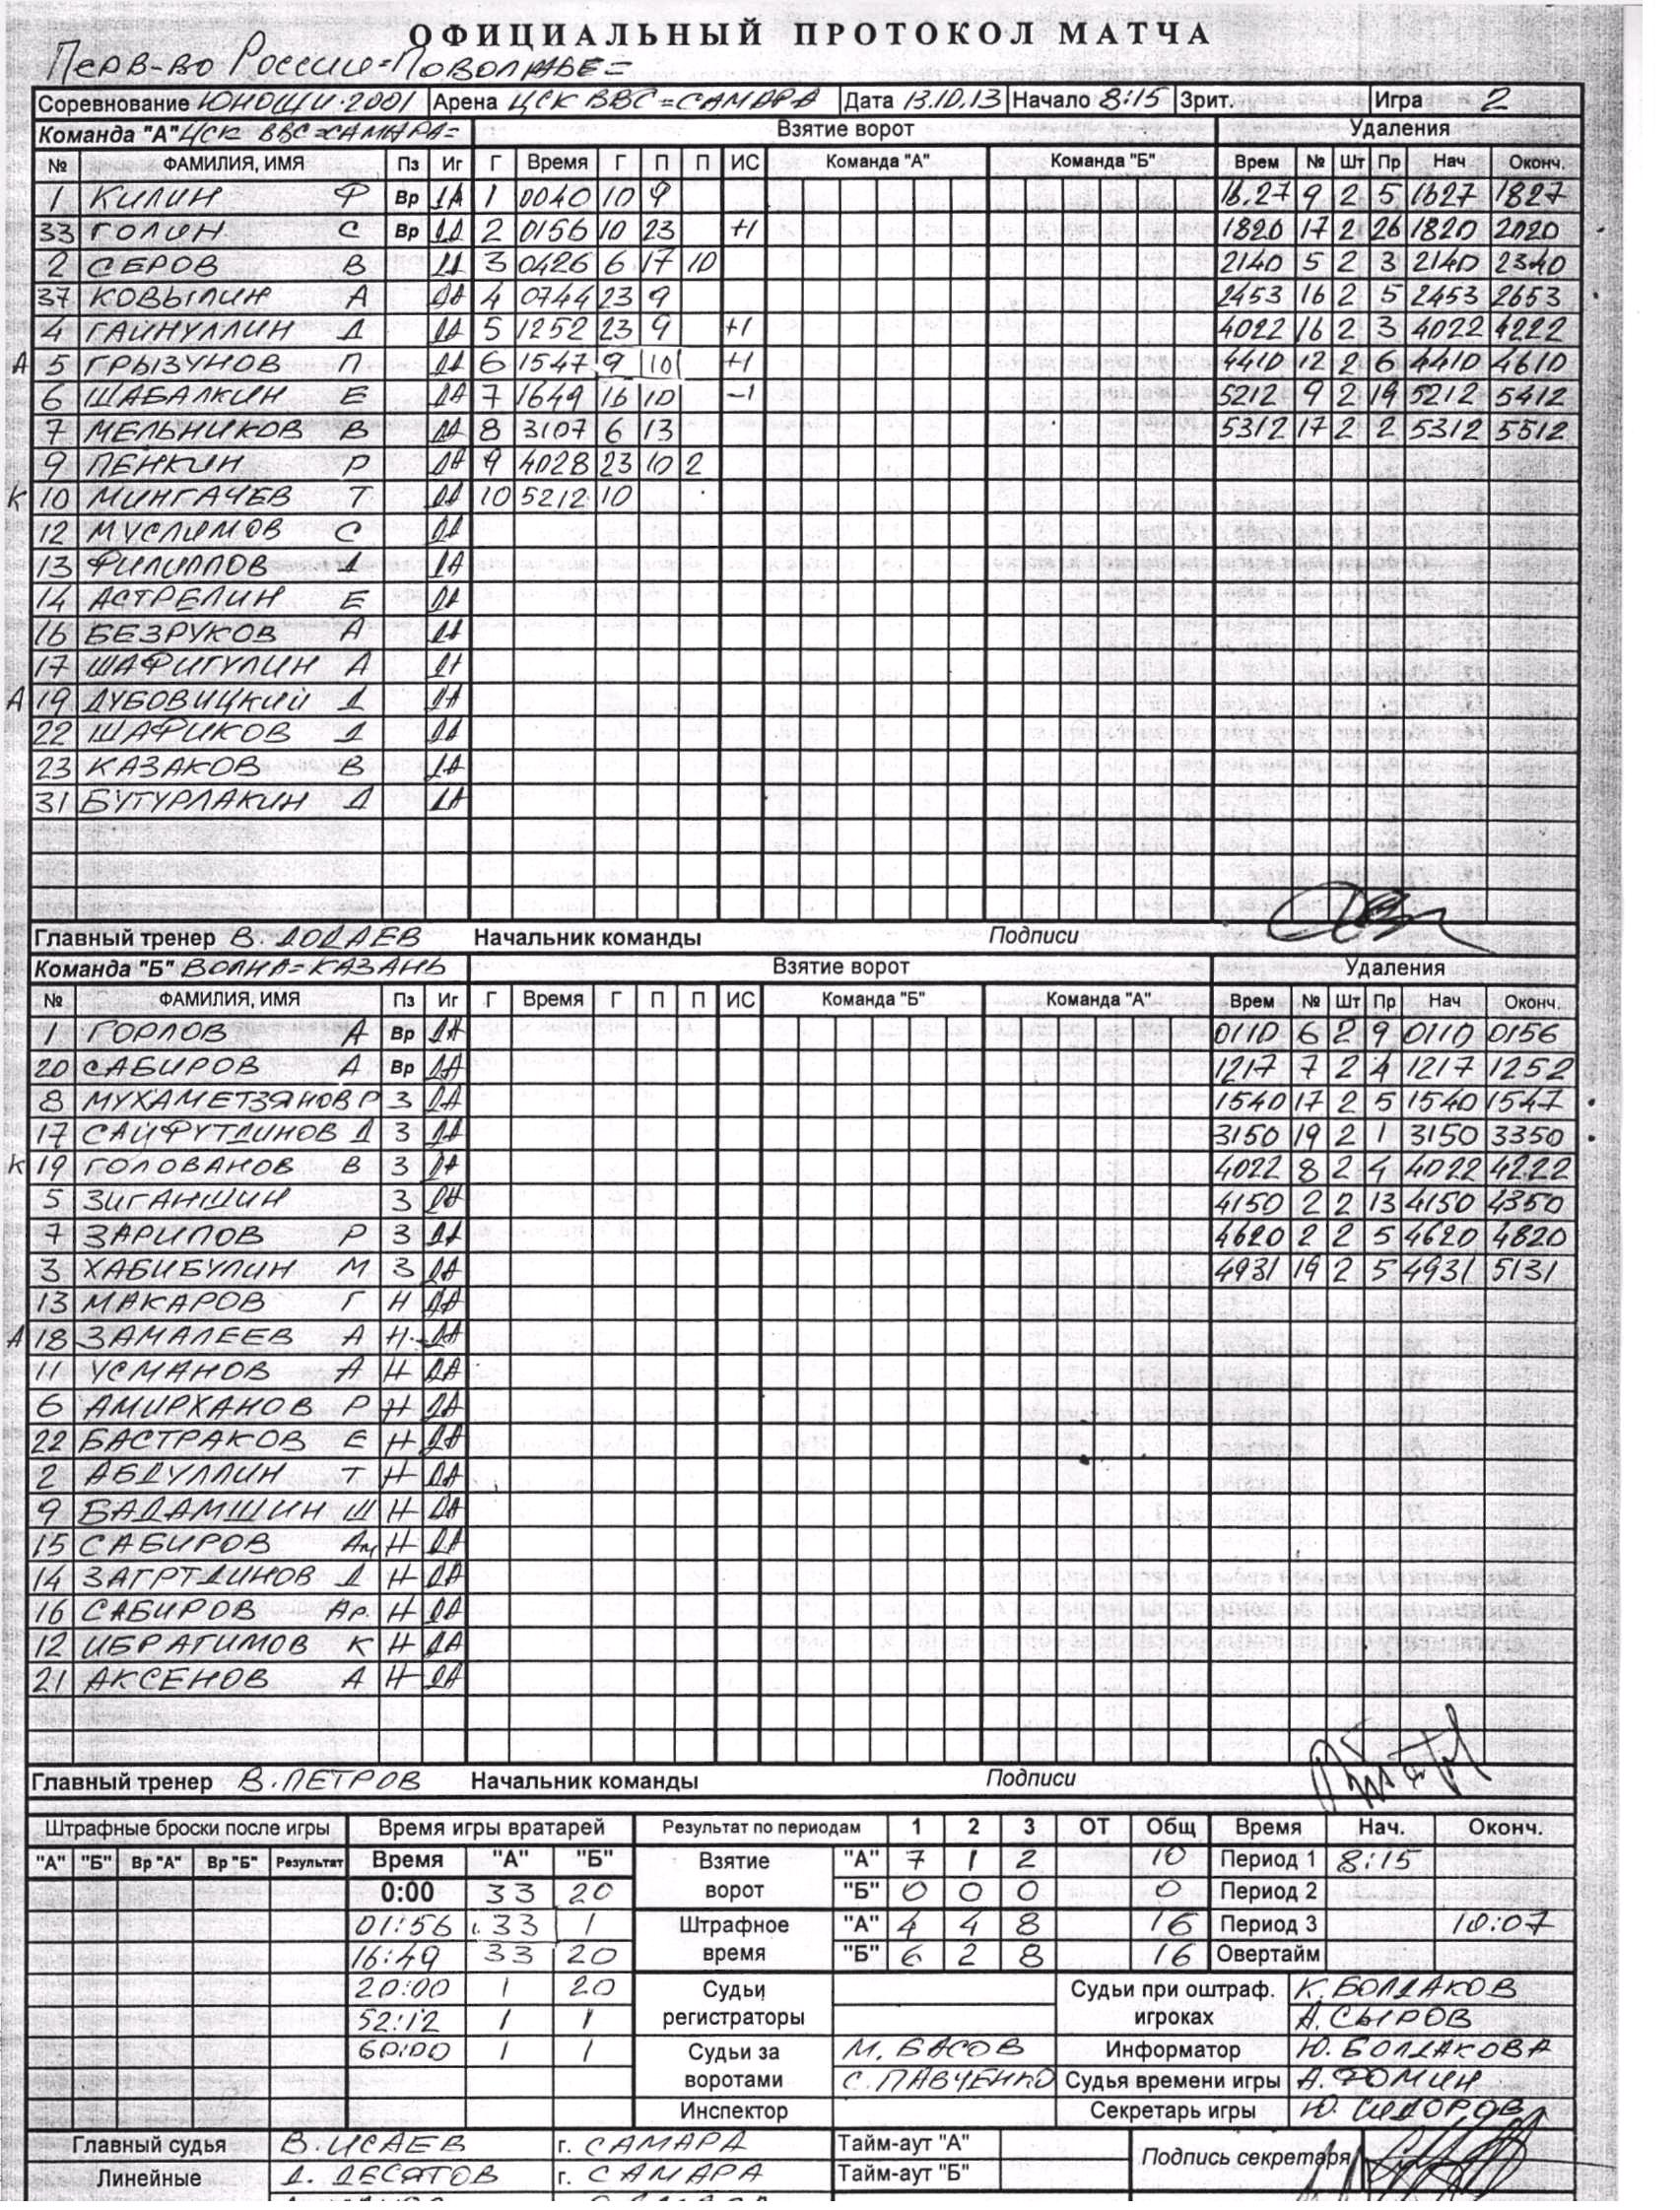 ОФИЦИАЛЬНЫЙ ПРОТОКОЛ МАТЧА
Перв-во России=Поволжье=
Соревнование ЮНОШИ·2001 Арена ЦСК ВВС=САМАРА Дата 13.10.13 Начало 8:15 Зрит. Игра 2
Команда "А" ЦСК ВВС=САМАРА= Взятие ворот Удаления
№ ФАМИЛИЯ, ИМЯ Пз Иг Г Время Г П П ИС Команда "А" Команда "Б" Врем № Шт Пр Нач Оконч.
1 КИЛИН Ф Вр ДА 1 0040 10 9 16.27 9 2 5 1627 1827
33 ГОЛИН С Вр ДА 2 0156 10 23 +1 1820 17 2 26 1820 2020
2 СЕРОВ В ДА 3 0426 6 17 10 2140 5 2 3 2140 2340
37 КОВЫЛИН А ДА 4 0744 23 9 2453 16 2 5 2453 2653
4 ГАЙНУЛЛИН Д ДА 5 1252 23 9 +1 4022 16 2 3 4022 4222
А 5 ГРЫЗУНОВ П ДА 6 1547 9 10 +1 4410 12 2 6 4410 4610
6 ШАБАЛКИН Е ДА 7 1649 16 10 -1 5212 9 2 19 5212 5412
7 МЕЛЬНИКОВ В ДА 8 3107 6 13 5312 17 2 2 5312 5512
9 ПЕНКИН Р ДА 9 4028 23 10 2
К 10 МИНГАЧЕВ Т ДА 10 5212 10
12 МУСЛИМОВ С ДА
13 ФИЛИППОВ Д ДА
14 АСТРЕЛИН Е ДА
16 БЕЗРУКОВ А ДА
17 ШАФИГУЛИН А ДА
А 19 ДУБОВИЦКИЙ Д ДА
22 ШАФИКОВ Д ДА
23 КАЗАКОВ В ДА
31 БУТУРЛАКИН Д ДА
Главный тренер В. ДОДАЕВ Начальник команды Подписи
Команда "Б" ВОЛНА=КАЗАНЬ Взятие ворот Удаления
№ ФАМИЛИЯ, ИМЯ Пз Иг Г Время Г П П ИС Команда "Б" Команда "А" Врем № Шт Пр Нач Оконч.
1 ГОРЛОВ А Вр ДА 0110 6 2 9 0110 0156
20 САБИРОВ А Вр ДА 1217 7 2 4 1217 1252
8 МУХАМЕТЗЯНОВ Р З ДА 1540 17 2 5 1540 1547
17 САЙФУТДИНОВ Д З ДА 3150 19 2 1 3150 3350
К 19 ГОЛОВАНОВ В З ДА 4022 8 2 4 4022 4222
5 ЗИГАНШИН З ДА 4150 2 2 13 4150 4350
7 ЗАРИПОВ Р З ДА 4620 2 2 5 4620 4820
3 ХАБИБУЛИН М З ДА 4931 19 2 5 4931 5131
13 МАКАРОВ Г Н ДА
А 18 ЗАМАЛЕЕВ А Н ДА
11 УСМАНОВ А Н ДА
6 АМИРХАНОВ Р Н ДА
22 БАСТРАКОВ Е Н ДА
2 АБДУЛЛИН Т Н ДА
9 БАДАМШИН Ш Н ДА
15 САБИРОВ Ам Н ДА
14 ЗАГРТДИНОВ Д Н ДА
16 САБИРОВ Ар. Н ДА
12 ИБРАГИМОВ К Н ДА
21 АКСЕНОВ А Н ДА
Главный тренер В. ПЕТРОВ Начальник команды Подписи
Штрафные броски после игры Время игры вратарей Результат по периодам 1 2 3 ОТ Общ Время Нач. Оконч.
"А" "Б" Вр "А" Вр "Б" Результат Время "А" "Б" Взятие ворот "А" 7 1 2 10 Период 1 8:15
0:00 33 20 "Б" 0 0 0 0 Период 2
01:56 33 1 Штрафное время "А" 4 4 8 16 Период 3 10:07
16:49 33 20 "Б" 6 2 8 16 Овертайм
20:00 1 20 Судьи регистраторы Судьи при оштраф. игроках К. БОЛДАКОВ
52:12 1 1 А. СЫРОВ
60:00 1 1 Судьи за воротами М. БАСОВ Информатор Ю. БОЛДАКОВА
С. ПАВЧЕНКО Судья времени игры А. ФОМИН
Инспектор Секретарь игры Ю. СИДОРОВ
Главный судья В. ИСАЕВ г. САМАРА Тайм-аут "А" Подпись секретаря
Линейные Д. ДЕСЯТОВ г. САМАРА Тайм-аут "Б"